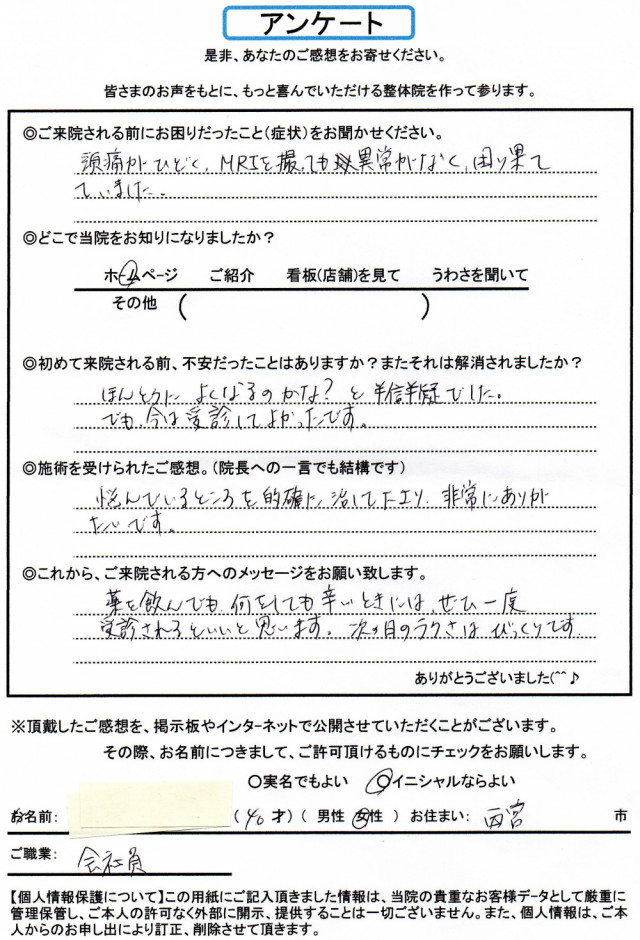 アンケート
是非、あなたのご感想をお寄せください。
皆さまのお声をもとに、もっと喜んでいただける整体院を作って参ります。
◎ご来院される前にお困りだったこと(症状)をお聞かせください。
頭痛がひどく、MRIを撮っても異常がなく、困り果て
ていました。
◎どこで当院をお知りになりましたか？
ホームページ ご紹介 看板(店舗)を見て うわさを聞いて
その他 ( )
◎初めて来院される前、不安だったことはありますか？またそれは解消されましたか？
ほんとうに よくなるのかな？と 半信半疑でした。
でも、今は受診してよかったです。
◎施術を受けられたご感想。(院長への一言でも結構です)
悩んでいるところを的確に治して下さり、非常にありが
たいです。
◎これから、ご来院される方へのメッセージをお願い致します。
薬を飲んでも、何をしても辛いときには、ぜひ一度
受診されるといいと思います。次の日のラクさは びっくりです。
ありがとうございました(^^♪
※頂戴したご感想を、掲示板やインターネットで公開させていただくことがございます。
その際、お名前につきまして、ご許可頂けるものにチェックをお願いします。
○実名でもよい ○イニシャルならよい
お名前: (40 才) ( 男性 女性 ) お住まい: 西宮 市
ご職業: 会社員
【個人情報保護について】この用紙にご記入頂きました情報は、当院の貴重なお客様データとして厳重に
管理保管し、ご本人の許可なく外部に開示、提供することは一切ございません。また、個人情報は、ご本
人からのお申し出により訂正、削除させて頂きます。